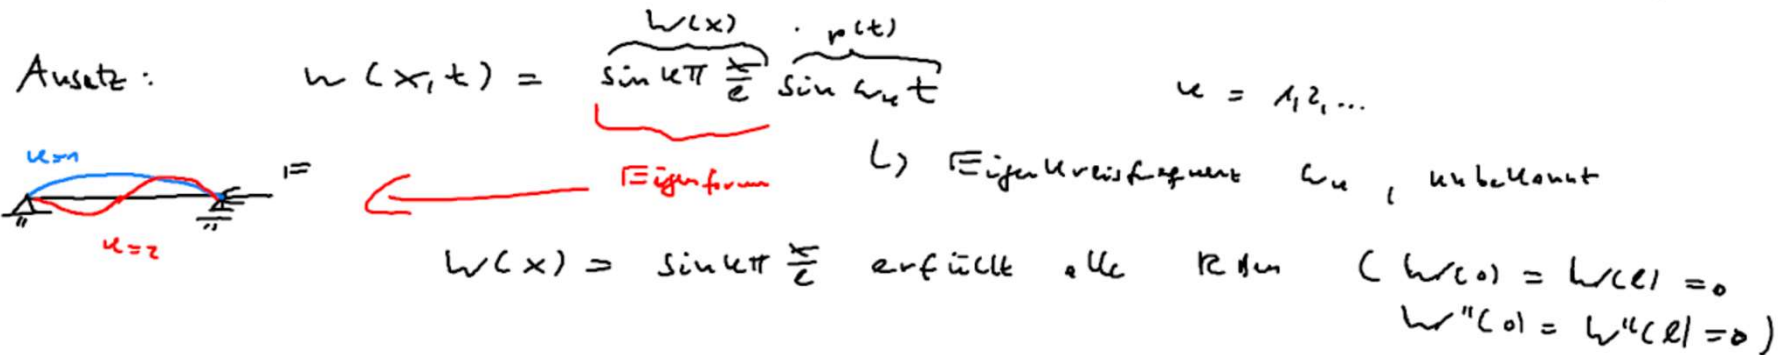 W(x) · p(t)
Ansatz: w(x,t) = sin kπ x/l sin ωₖ t k = 1,2,...
k=1
Eigenform
↳ Eigenkreisfrequenz ωₖ, unbekannt
k=2
W(x) = sin kπ x/l erfüllt alle RBen (W(0) = W(l) = 0
W''(0) = W''(l) = 0)